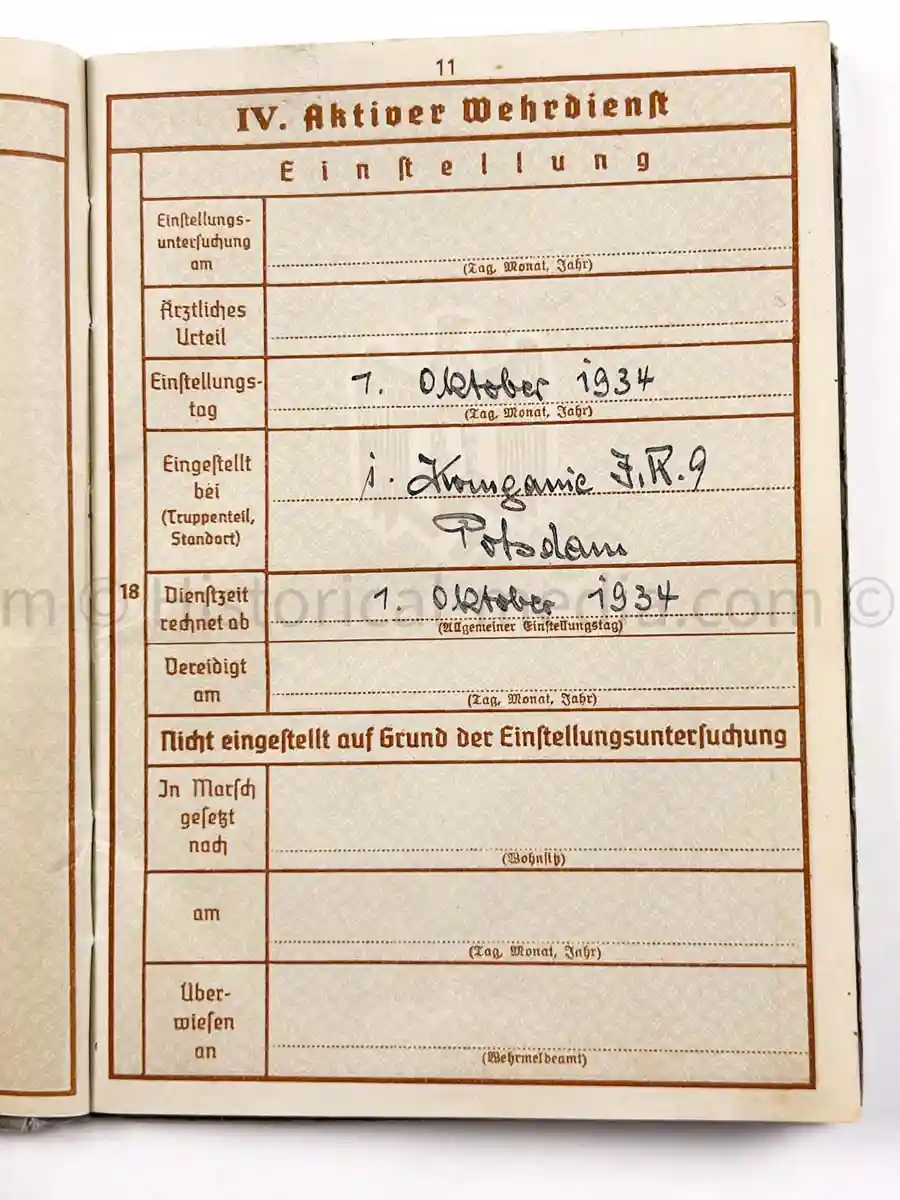 11
IV. Aktiver Wehrdienst
Einstellung
Einstellungs-
untersuchung
am
(Tag, Monat, Jahr)
Ärztliches
Urteil
Einstellungs-
tag
1. Oktober 1934
(Tag, Monat, Jahr)
Eingestellt
bei
(Truppenteil,
Standort)
1. Kompanie I.R.9
Potsdam
18
Dienstzeit
rechnet ab
1. Oktober 1934
(Allgemeiner Einstellungstag)
Vereidigt
am
(Tag, Monat, Jahr)
Nicht eingestellt auf Grund der Einstellungsuntersuchung
In Marsch
gesetzt
nach
(Wohnsitz)
am
(Tag, Monat, Jahr)
Über-
wiesen
an
(Wehrmeldeamt)